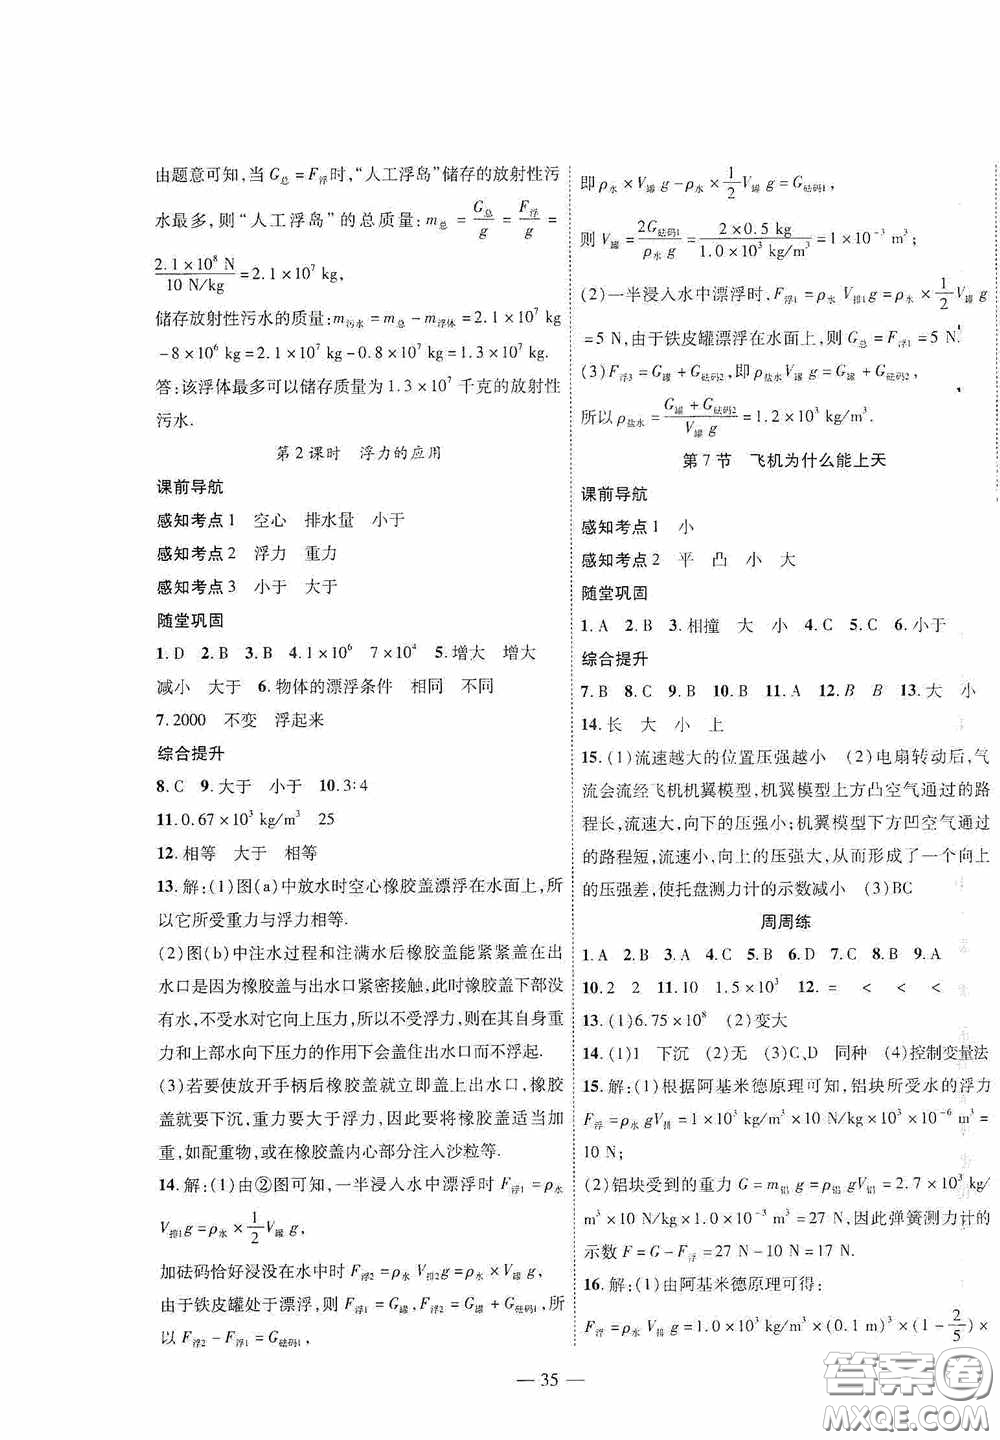 由题意可知,当 G总 = F浮时,“人工浮岛”储存的放射性污
水最多,则“人工浮岛”的总质量:m总 = G总/g = F浮/g =
2.1×10⁸ N/10 N/kg = 2.1×10⁷ kg,
储存放射性污水的质量:m污水 = m总 − m浮体 = 2.1×10⁷ kg
−8×10⁶ kg = 2.1×10⁷ kg−0.8×10⁷ kg = 1.3×10⁷ kg.
答:该浮体最多可以储存质量为 1.3×10⁷ 千克的放射性
污水.
第2课时 浮力的应用
课前导航
感知考点1 空心 排水量 小于
感知考点2 浮力 重力
感知考点3 小于 大于
随堂巩固
1.D 2.B 3.B 4.1×10⁶ 7×10⁴ 5.增大 增大
减小 大于 6.物体的漂浮条件 相同 不同
7.2000 不变 浮起来
综合提升
8.C 9.大于 小于 10.3:4
11.0.67×10³ kg/m³ 25
12.相等 大于 相等
13.解:(1)图(a)中放水时空心橡胶盖漂浮在水面上,所
以它所受重力与浮力相等.
(2)图(b)中注水过程和注满水后橡胶盖能紧紧盖在出
水口是因为橡胶盖与出水口紧密接触,此时橡胶盖下部没
有水,不受水对它向上压力,所以不受浮力,而在其自身重
力和上部水向下压力的作用下会盖住出水口而不浮起.
(3)若要使放开手柄后橡胶盖就能盖上出水口,橡胶
盖就要下沉,重力要大于浮力,因此要将橡胶盖适当加
重,如配重物,或在橡胶盖内心部分注入沙粒等.
14.解:(1)由②图可知,一半浸入水中漂浮时 F浮1 = ρ水
V排1g = ρ水 × 1/2 V罐 g,
加砝码恰好浸没在水中时 F浮2 = ρ水 V排2g = ρ水 × V罐 g,
由于铁皮罐处于漂浮,则 F浮1 = G罐,F浮2 = G罐 + G砝码1,所
以 F浮2 − F浮1 = G砝码1,
即 ρ水 × V罐 g − ρ水 × 1/2 V罐 g = G砝码1,
则 V罐 = 2G砝码1/ρ水 g = 2×0.5 kg/1.0×10³ kg/m³ = 1×10⁻³ m³;
(2)一半浸入水中漂浮时,F浮1 = ρ水 V排1g = ρ水 × 1/2 V罐 g
=5 N,由于铁皮罐漂浮在水面上,则 G总 = F浮1 = 5 N.
(3)F浮3 = G罐 + G砝码2,即 ρ盐水V罐 g = G罐 + G砝码2,
所以 ρ盐水 = G罐 + G砝码2/V罐 g = 1.2×10³ kg/m³.
第7节 飞机为什么能上天
课前导航
感知考点1 小
感知考点2 平 凸 小 大
随堂巩固
1.A 2.B 3.相撞 大 小 4.C 5.C 6.小于
综合提升
7.B 8.C 9.B 10.B 11.A 12.B B 13.大 小
14.长 大 小 上
15.(1)流速越大的位置压强越小 (2)电扇转动后,气
流会流经飞机机翼模型,机翼模型上方凸空气通过的路
程长,流速大,向下的压强小;机翼模型下方凹空气通过
的路程短,流速小,向上的压强大,从而形成了一个向上
的压强差,使托盘测力计的示数减小 (3)BC
周周练
1.A 2.B 3.A 4.C 5.B 6.D 7.B 8.B 9.A
10.2 2 11.10 1.5×10³ 12.= < < <
13.(1)6.75×10⁸ (2)变大
14.(1)1 下沉 (2)无 (3)C、D 同种 (4)控制变量法
15.解:(1)根据阿基米德原理可知,铝块所受水的浮力
F浮 = ρ水 gV排 = 1×10³ kg/m³×10 N/kg×10³×10⁻⁶ m³ =
10 N;
(2)铝块受到的重力 G = m铝 g = ρ铝 gV铝 = 2.7×10³ kg/
m³×10 N/kg×1.0×10⁻³ m³ = 27 N,因此弹簧测力计的
示数 F = G − F浮 = 27 N − 10 N = 17 N.
16.解:(1)由阿基米德原理可得:
F浮 = ρ水 V排 g = 1.0×10³ kg/m³×(0.1 m)³×(1−2/5)×
— 35 —
答案圈
MXQE.COM